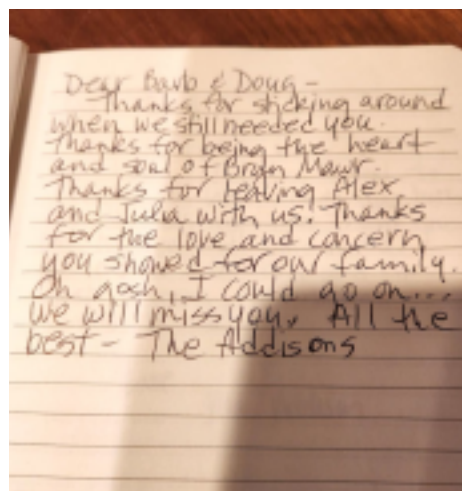 Dear Barb & Doug -
Thanks for sticking around
when we still needed you.
Thanks for being the heart
and soul of Bryn Mawr.
Thanks for leaving Alex
and Julia with us! Thanks
for the love and concern
you showed for our family.
Oh gosh, I could go on...
We will miss you. All the
best - The Addisons